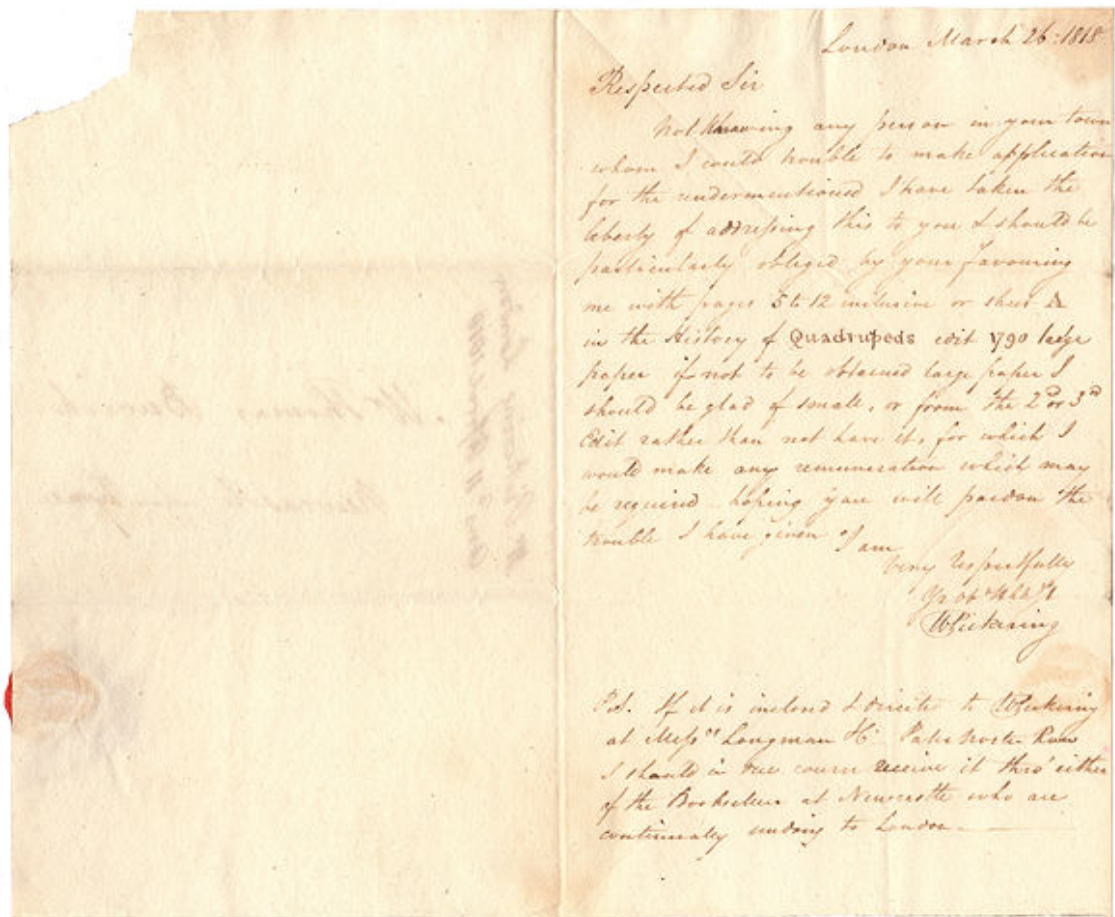 London March 26: 1818
Respected Sir
Not knowing any person in your town
whom I could trouble to make application
for the undermentioned I have taken the
liberty of addressing this to you & should be
particularly obliged by your favouring
me with pages 5 to 12 inclusive or sheet A
in the History of Quadrupeds edit 1790 large
paper if not to be obtained large paper I
should be glad of small, or from the 2d or 3rd
Edit rather than not have it, for which I
would make any remuneration which may
be required hoping you will pardon the
trouble I have given I am
Very Respectfully
WPickering
P.S. If it is inclosed & directed to WPickering
at Messrs Longman & Co Paternoster Row
I should in due course receive it thro' either
of the Booksellers at Newcastle who are
continually sending to London
Mr Thomas Bewick
Newcastle upon Tyne